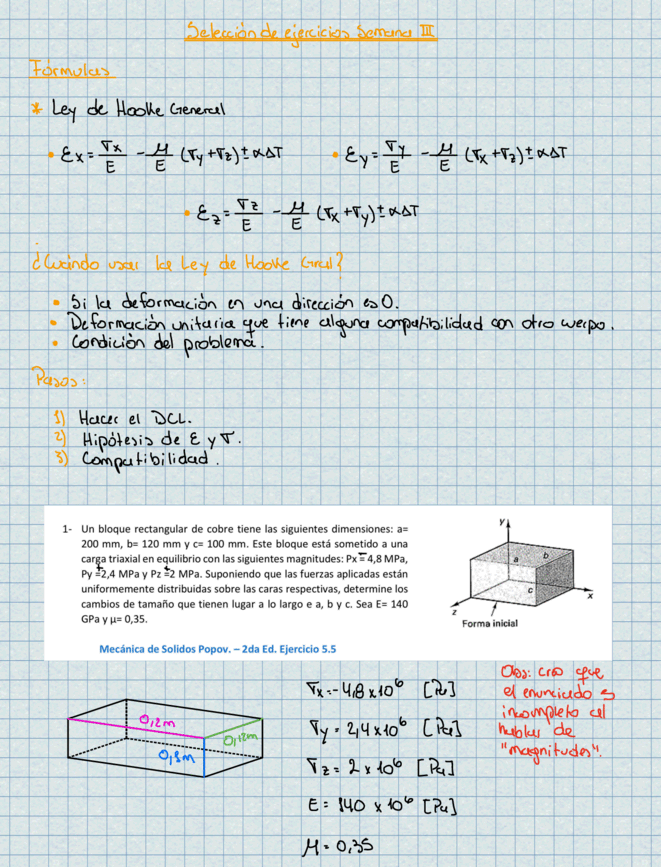 Selección de ejercicios Semana III
Fórmulas
* Ley de Hooke General
• εx = σx/E - μ/E (σy + σz) ± αΔT • εy = σy/E - μ/E (σx + σz) ± αΔT
• εz = σz/E - μ/E (σx + σy) ± αΔT
¿Cuándo usar la Ley de Hooke Gral?
• Si la deformación en una dirección es 0.
• Deformación unitaria que tiene alguna compatibilidad con otro cuerpo.
• Condición del problema.
Pasos:
1) Hacer el DCL.
2) Hipótesis de ε y σ.
3) Compatibilidad.
1- Un bloque rectangular de cobre tiene las siguientes dimensiones: a=
200 mm, b= 120 mm y c= 100 mm. Este bloque está sometido a una
carga triaxial en equilibrio con las siguientes magnitudes: Px = -4,8 MPa,
Py = +2,4 MPa y Pz = +2 MPa. Suponiendo que las fuerzas aplicadas están
uniformemente distribuidas sobre las caras respectivas, determine los
cambios de tamaño que tienen lugar a lo largo e a, b y c. Sea E= 140
GPa y μ= 0,35.
Mecánica de Solidos Popov. – 2da Ed. Ejercicio 5.5
y
a
b
c
x
z
Forma inicial
0,2m
0,12m
0,1m
σx = -4,8 x 10⁶ [Pa]
σy = 2,4 x 10⁶ [Pa]
σz = 2 x 10⁶ [Pa]
E = 140 x 10⁶ [Pa]
μ = 0,35
Obs: creo que
el enunciado es
incompleto al
hablar de
"magnitudes".